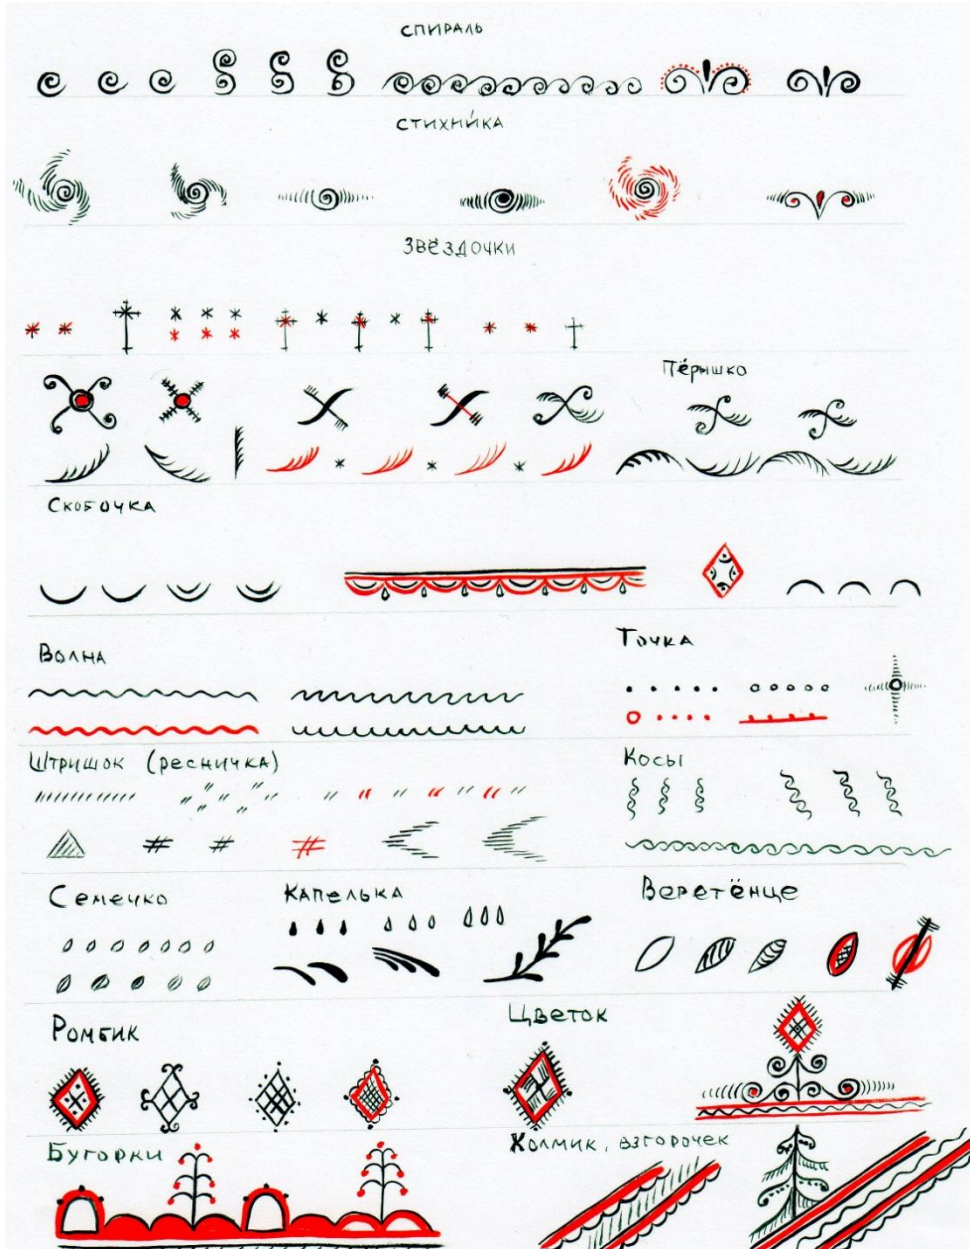 СПИРАЛЬ
СТИХНИ́КА
ЗВЁЗДОЧКИ
Пёрышко
Скобочка
Волна
Точка
Штришок (ресничка)
Косы
Семечко
Капелька
Веретёнце
Ромбик
Цветок
Бугорки
Холмик, взгорочек